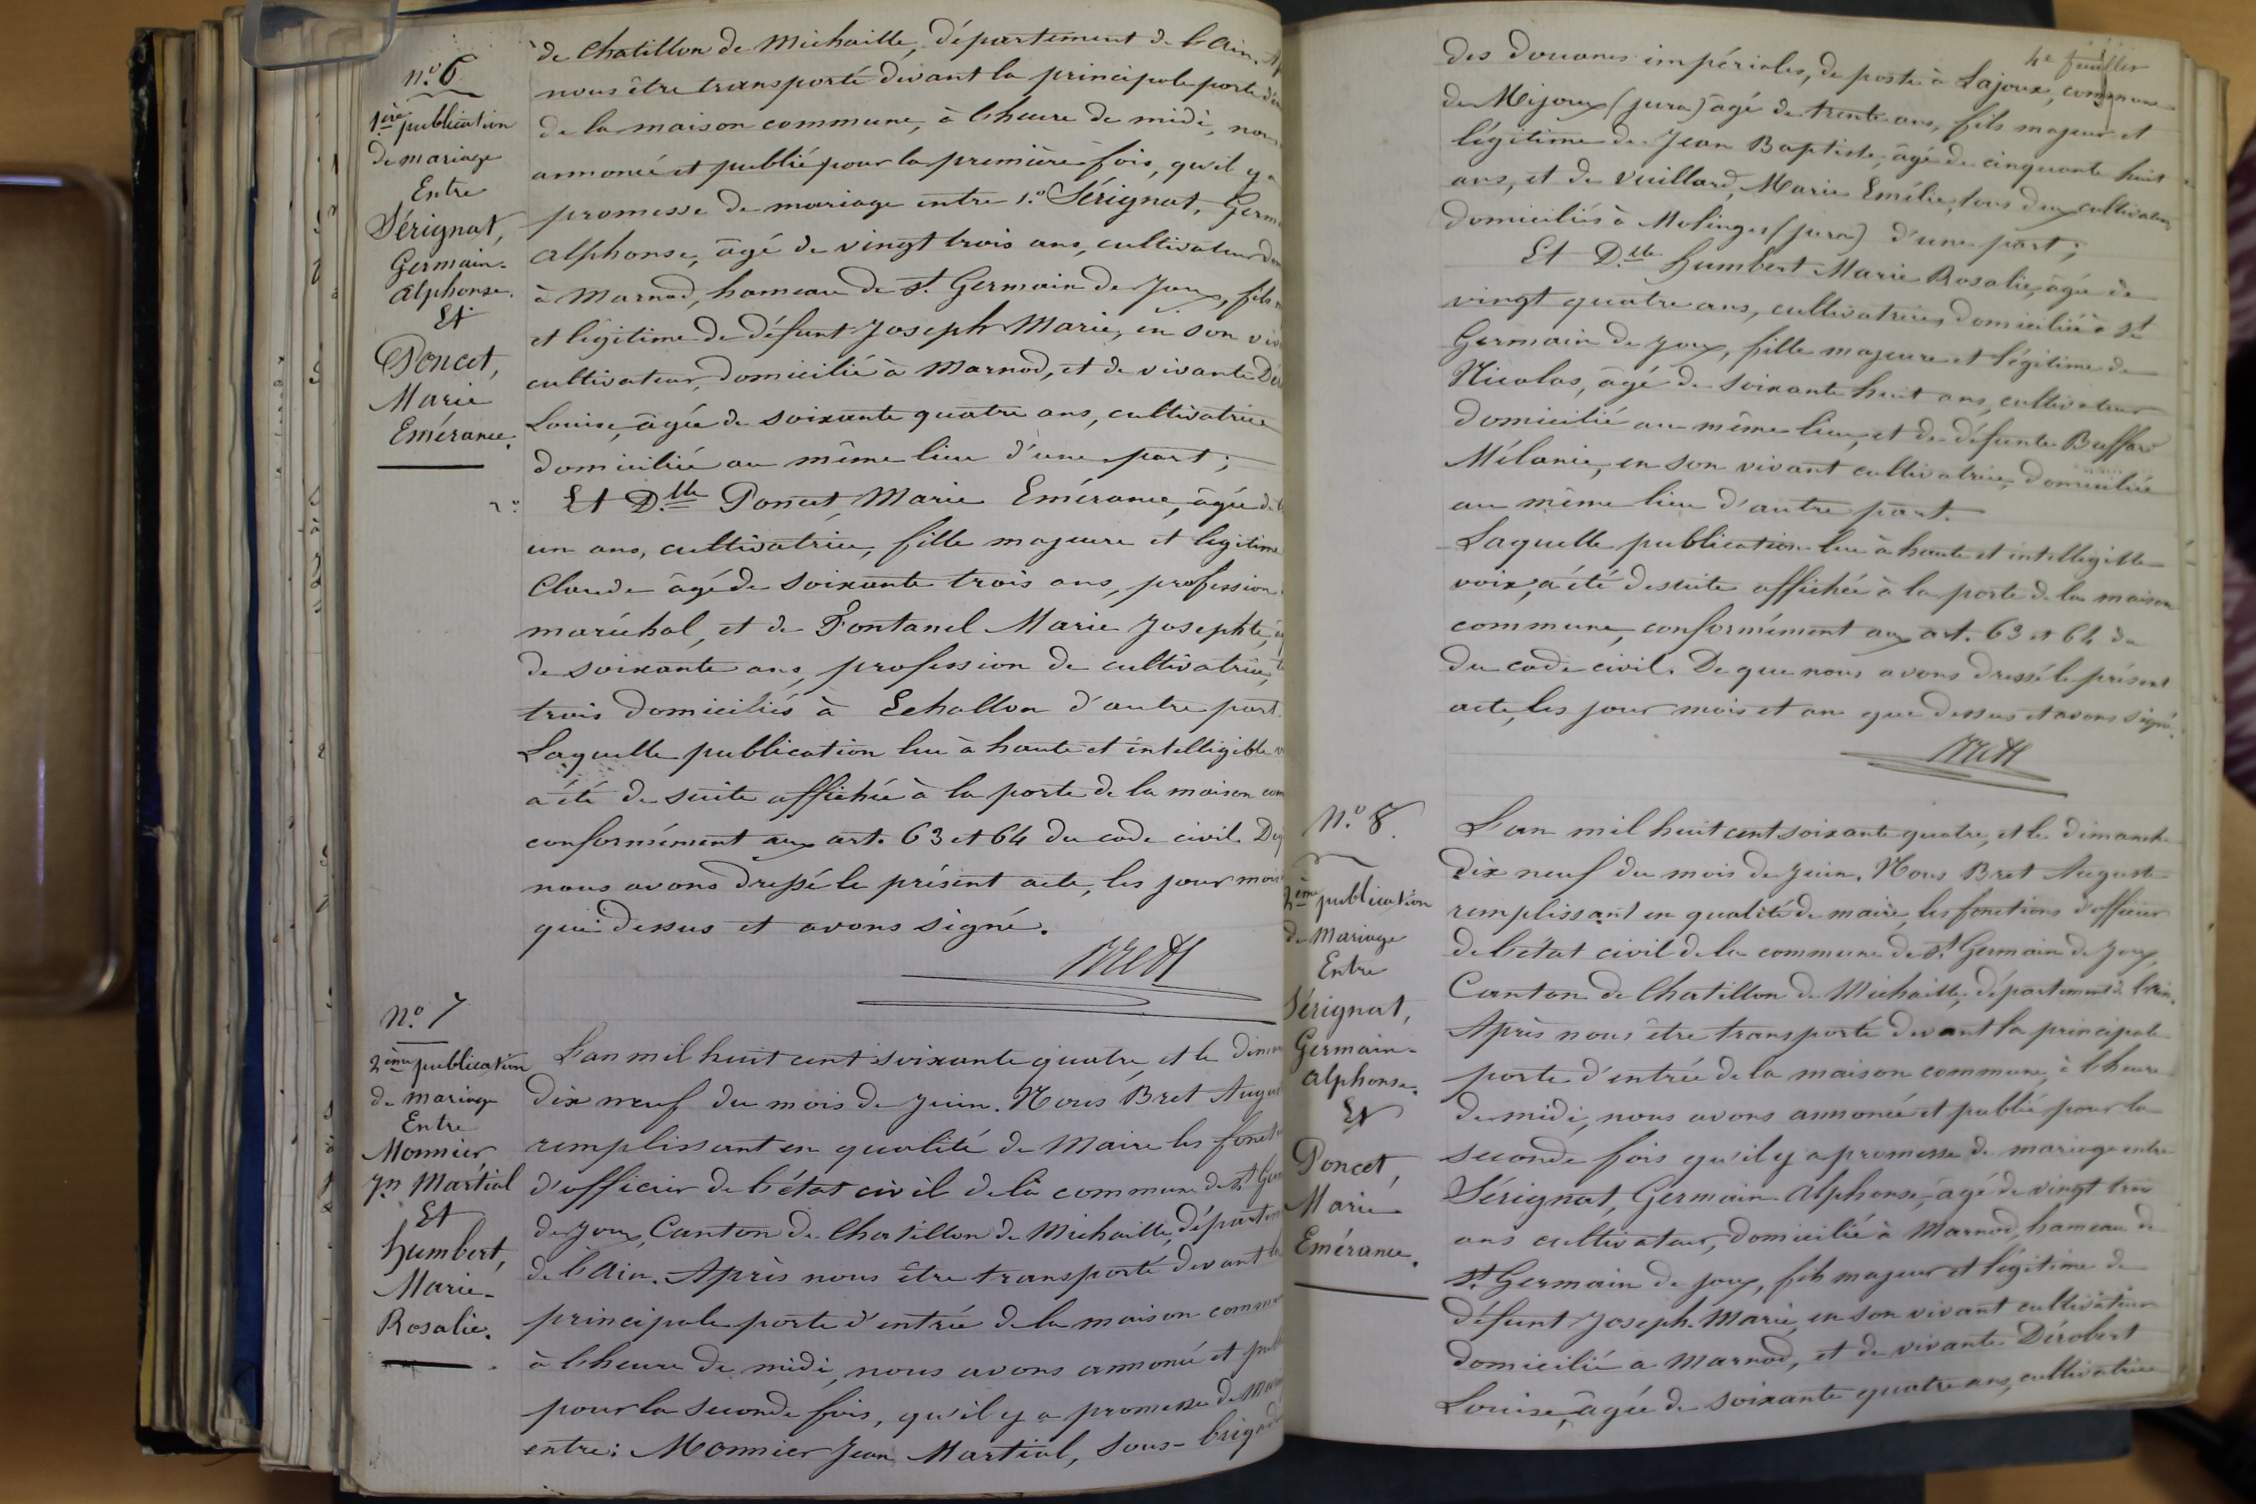 n.o 6
1ère publication
de mariage
Entre
Sérignat,
Germain-
Alphonse.
Et
Poncet,
Marie
Emérance.
de Chatillon de Michaille, département de l'Ain.
nous être transporté devant la principale porte
de la maison commune, à l'heure de midi,
annoncé et publié pour la première fois, qu'il y
promesse de mariage entre 1.o Sérignat,
Alphonse, âgé de vingt trois ans, cultivateur
à Marnod, hameau de St. Germain de Joux, fils
et légitime de défunt Joseph Marie, en son
cultivateur, domicilié à Marnod, et de vivante
Louise, âgée de soixante quatre ans, cultivatrice
domiciliée au même lieu d'une part;
2o Et D.lle Poncet Marie Emérance, âgée de
un ans, cultivatrice, fille majeure et légitime
Claude âgé de soixante trois ans, profession
maréchal, et de Fontanel Marie Josephte,
de soixante ans, profession de cultivatrice,
trois domiciliés à Echallon d'autre part.
Laquelle publication lue à haute et intelligible
a été de suite affichée à la porte de la maison
conformément aux art. 63 et 64 du code civil.
nous avons dressé le présent acte, les jour mois
que dessus et avons signé.
Bret
N.o 7
2ème publication
de mariage
Entre
Monnier
Jn Martial
Et
Humbert,
Marie-
Rosalie.
L'an mil huit cent soixante quatre, et le
dix neuf du mois de Juin. Nous Bret
remplissant en qualité de Maire les
d'officier de l'état civil de la commune de St
de Joux, Canton de Chatillon de Michaille,
de l'Ain. Après nous être transporté devant
principale porte d'entrée de la maison
à l'heure de midi, nous avons annoncé et
pour la seconde fois, qu'il y a promesse de
entre: Monnier Jean Martial, sous-
4e feuillet
des Douanes impériales, de poste à Lajoux, commune
de Mijoux (Jura) âgé de trente ans, fils majeur et
légitime de Jean Baptiste, âgé de cinquante huit
ans, et de Vuillard, Marie Emélie, tous deux cultivateurs
domiciliés à Molinges (Jura) d'une part;
Et D.lle Humbert Marie Rosalie, âgée de
vingt quatre ans, cultivatrice, domiciliée à St
Germain de Joux, fille majeure et légitime de
Nicolas, âgé de soixante huit ans, cultivateur
domicilié au même lieu, et de défunte Buffard
Mélanie, en son vivant cultivatrice, domiciliée
au même lieu d'autre part.
Laquelle publication lue à haute et intelligible
voix, a été desuite affichée à la porte de la maison
commune, conformément aux art. 63 et 64 du
du code civil. De que nous avons dressé le présent
acte, les jour mois et an que dessus et avons signé.
Bret
N.o 8.
2ème publication
de Mariage
Entre
Sérignat,
Germain-
Alphonse.
Et
Poncet,
Marie
Emérance.
L'an mil huit cent soixante quatre, et le dimanche
dix neuf du mois de Juin. Nous Bret Auguste
remplissant en qualité de maire, les fonctions d'officier
de l'état civil de la commune de St. Germain de Joux,
Canton de Chatillon de Michaille, département de l'Ain.
Après nous être transporté devant la principale
porte d'entrée de la maison commune, à l'heure
de midi, nous avons annoncé et publié pour la
seconde fois qu'il y a promesse de mariage entre
Sérignat, Germain Alphonse, âgé de vingt trois
ans cultivateur, domicilié à Marnod, hameau de
St. Germain de Joux, fils majeur et légitime de
défunt Joseph Marie, en son vivant cultivateur
domicilié a Marnod, et de vivante Dérobert
Louise, âgée de soixante quatre ans, cultivatrice